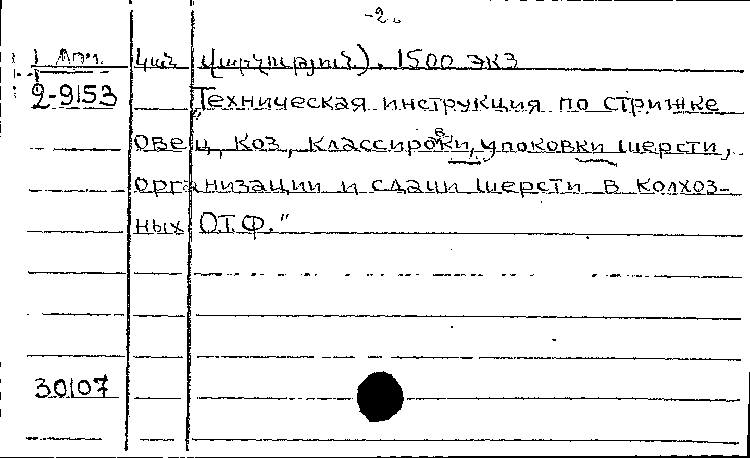 -2.
կան վարչություն). 1500 экз
2-9153 „Техническая инструкция по стрижке
овец, коз, классировки, упаковки шерсти,
организации и сдачи шерсти в колхоз-
ных ОТФ."
30107